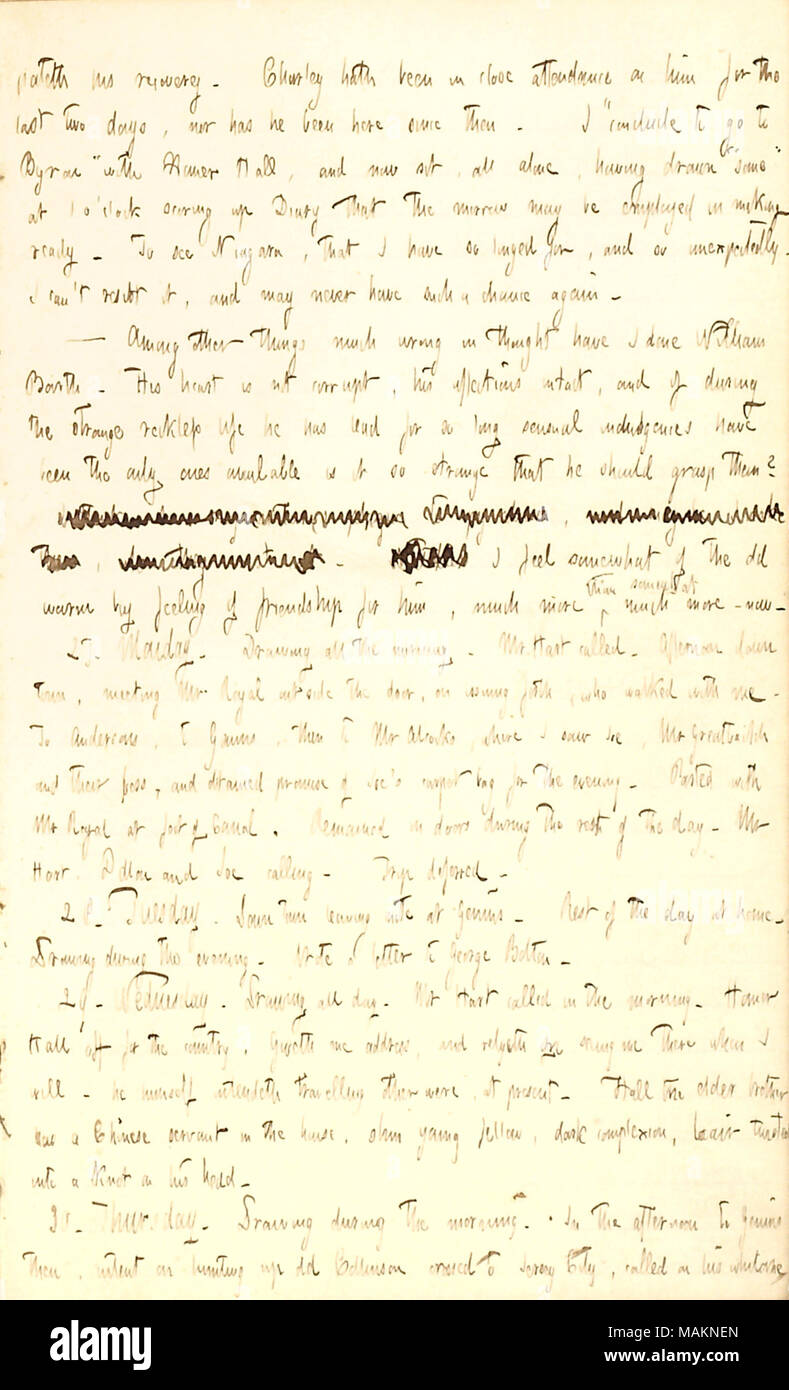 his recovery. Charley hath been in close attendance on him for the
last two days, nor has he been here since then. I "conclude to go to
Byron" with Homer Hall, and now sit, all alone, having drawn "some"
at 1 o'clock scoring up Diary that the morrow may be employed in making
ready. To see Niagara, that I have so longed for, and so unexpectedly.
I can't resist it, and may never have such a chance again.
— Among other things much wrong in thought have I done William
Barth. His heart is not corrupt, his affections intact, and if during
the strange reckless life he has lead for so long sensual indulgences have
been the only ones available is it so strange that he should grasp them?
I feel somewhat of the old
warm feeling of friendship for him, much more than somewhat, much more now.
27. Monday. Drawing all the morning. Mr Hart called. Afternoon down
town, meeting Mr Royal outside the door, on issuing forth, who walked with me.
To Andersons, to Gauns, then to Mr Alcocks, where I saw Joe, Mr Greatbatch
and their boss, and obtained promise of Joe's carpet bag for the evening. Parted with
Mr Royal at foot of Canal. Remained in doors during the rest of the day. Mr
Hart, Dillon and Joe calling. Trip deferred.
28. Tuesday. Down town leaving note at Genins. Rest of the day at home.
Drawing during the evening. Wrote a letter to George Bolton.
29. Wednesday. Drawing all day. Mr Hart called in the morning. Homer
Hall off for the country. Giveth me address, and relyeth on seeing me there when I
will. he himself intendeth travelling otherwere, at present. Hall the elder brother
has a Chinese servant in the house, slim young fellow, dark complexion, hair twisted
into a knot on his head.
30. Thursday. Drawing during the morning. In the afternoon to Genins
then, intent on hunting up old Edlinson crossed to Jersey City, called on his whilome
alamy
Image ID: MAKNEN
www.alamy.com